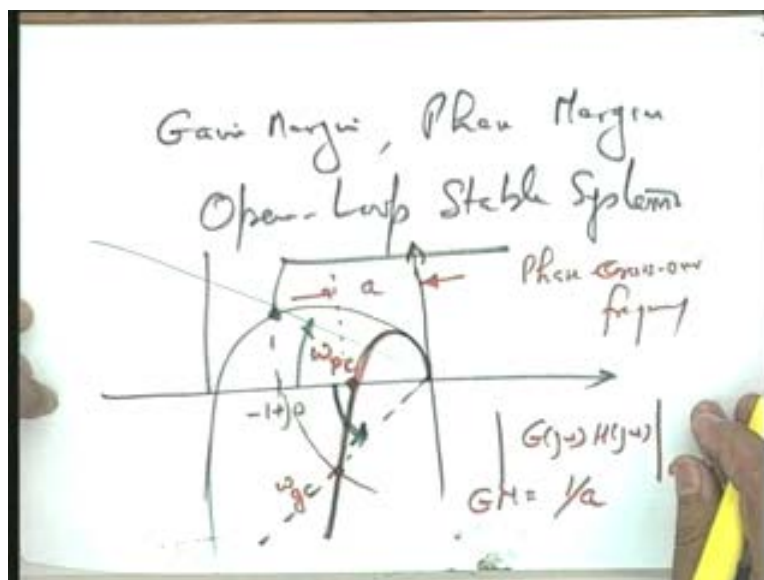 Gain Margin, Phase Margin
Open-Loop Stable Systems
Phase Cross-over
frequency
a
1
ωpc
-1+j0
ωgc
|G(jω)H(jω)|
GM = 1/a